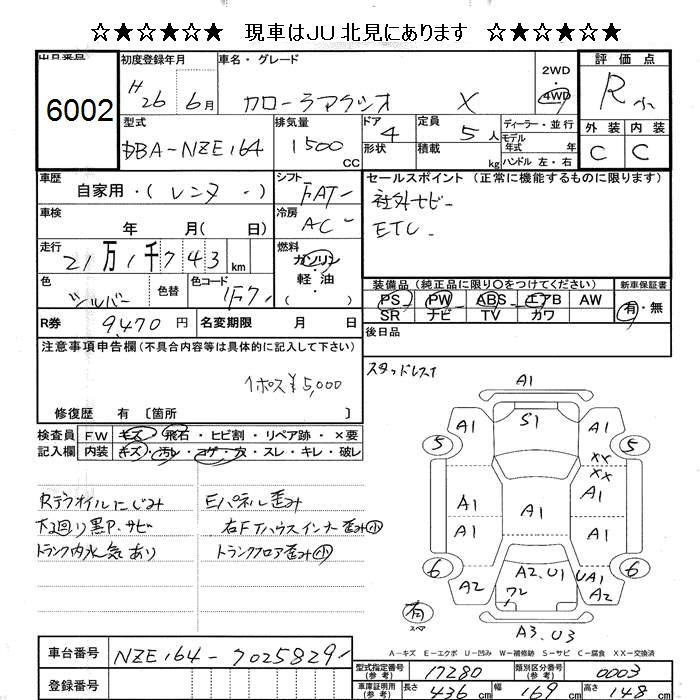 ☆★☆★☆★ 現車はJU北見にあります ☆★☆★☆★
出品番号 6002
初度登録年月 H26年 6月
車名・グレード カローラアクシオ X
2WD・4WD
評価点 R小
型式 DBA-NZE164
排気量 1500 CC
ドア 4
形状
定員 5人
積載 kg
ディーラー・並行
モデル年式 年式
ハンドル 左・右
外装 内装
C C
車歴 自家用・(レンタ・)
シフト FAT
セールスポイント (正常に機能するものに限ります)
社外ナビ
ETC
車検 年 月( 日)
冷房 AC
走行 21万1千743 km
燃料 ガソリン・軽油
( )
装備品(純正品に限り○をつけてください)
新車保証書
色 シルバー 色替
色コード 1F7
PS PW ABS エアB AW
有・無
SR ナビ TV カワ
R券 9,470円 名変期限 月 日
後日品
注意事項申告欄(不具合内容等は具体的に記入して下さい)
スタッドレス1
1ポス¥5,000
修復歴 有 〔箇所 〕
検査員記入欄
FW キズ・飛石・ヒビ割・リペア跡・×要
内装 キズ・汚レ・コゲ・穴・スレ・キレ・破レ
Rデフオイルにじみ
下廻り黒P.サビ
トランク内水気あり
Eパネル歪み
右Fインナー歪み小
トランクフロア歪み小
A1
A1 S1 A1
5 5
XX
XX
A1 A1
A1
A1 A1
6 6
A2 A2.U1 UA1
A2
ワレ
有 スペア
A3.U3
A-キズ E-エクボ U-凹み W-補修跡 S-サビ C-腐食 XX-交換済
車台番号 NZE164-7025829
登録番号
型式指定番号(参考) 17280 類別区分番号(参考) 0003
車庫証明用(参考) 長さ 436cm 幅 169cm 高さ 148cm